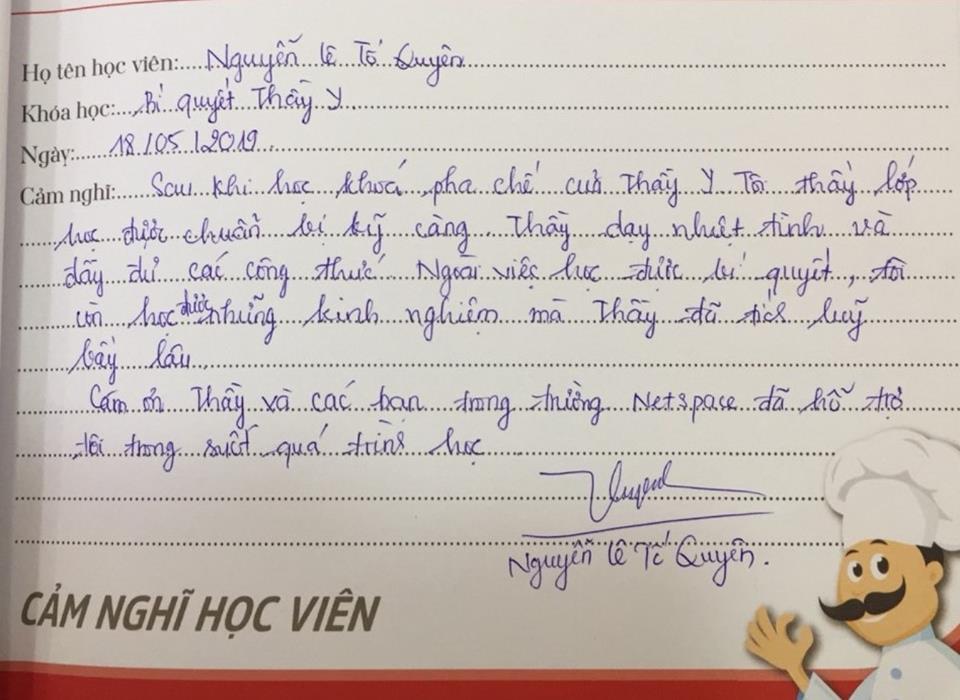 Họ tên học viên: Nguyễn Lê Tố Quyên
Khóa học: Bí quyết Thầy Y
Ngày: 18/05/2019
Cảm nghĩ: Sau khi học khoá pha chế của Thầy Y Tôi thấy lớp
học được chuẩn bị kỹ càng. Thầy dạy nhiệt tình và
đầy đủ các công thức. Ngoài việc học được bí quyết, tôi
còn học được những kinh nghiệm mà Thầy đã tích luỹ
bấy lâu.
Cám ơn Thầy và các bạn trong trường Netspace đã hỗ trợ
tôi trong suốt quá trình học
Quyên
Nguyễn Lê Tố Quyên.
CẢM NGHĨ HỌC VIÊN